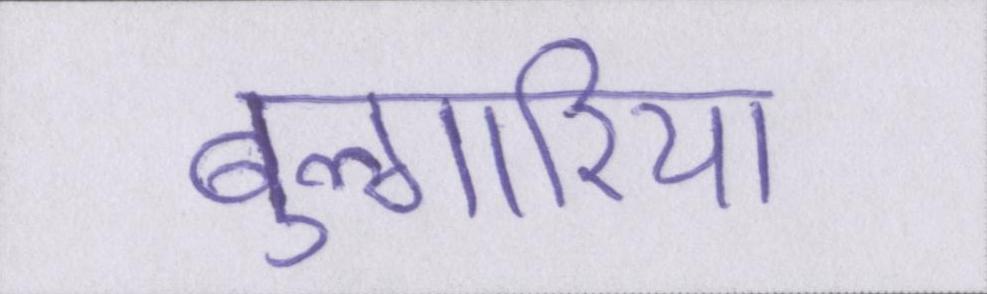 बुल्गारिया